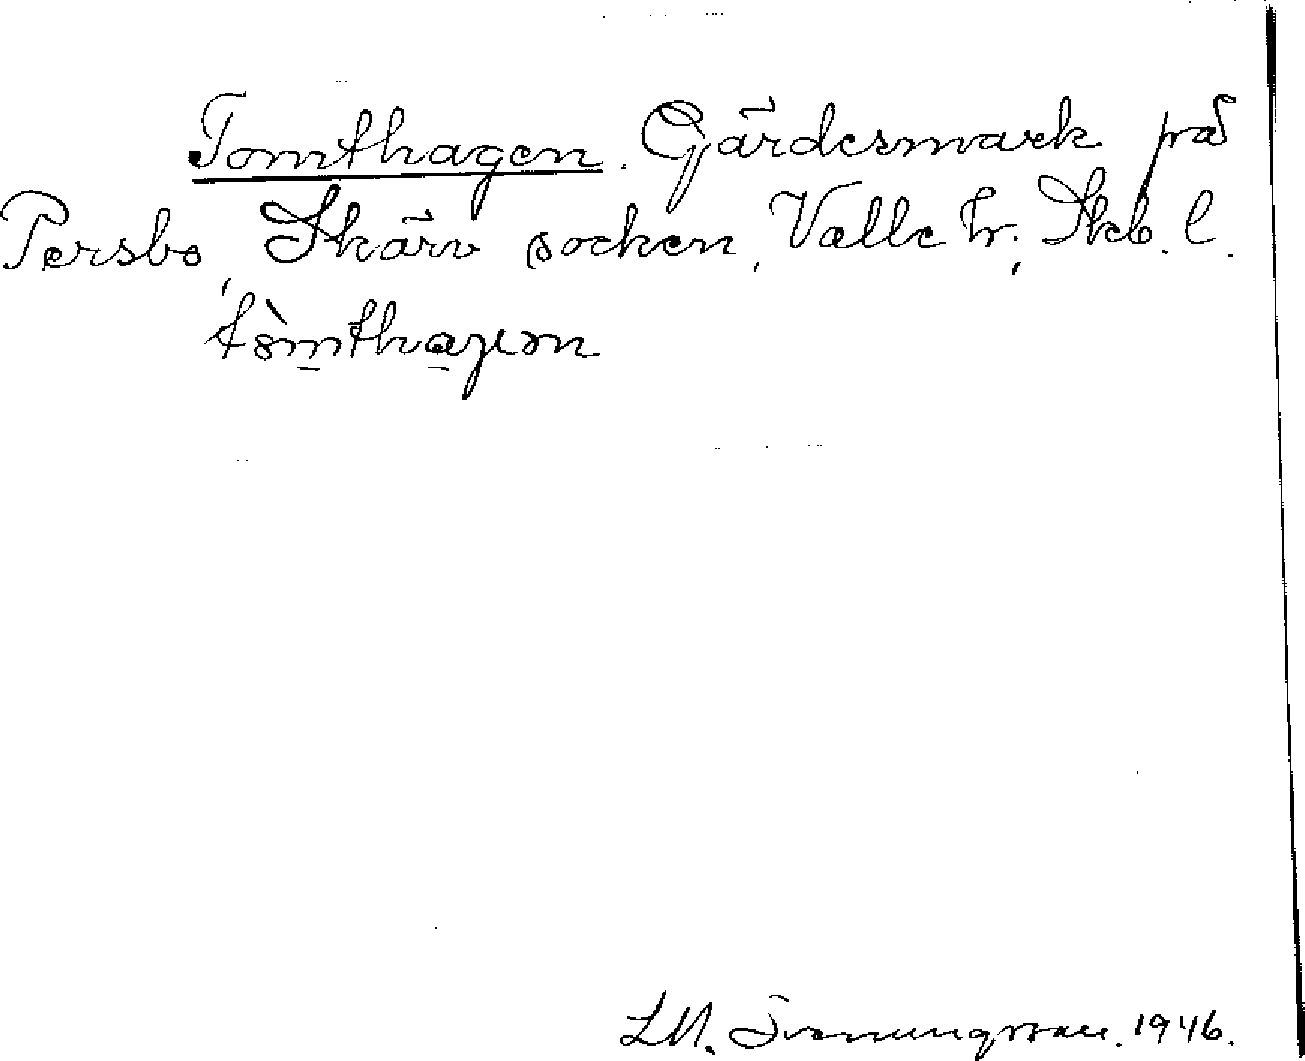 Tomthagen. Gärdesmark på
Persbo, Skärv socken, Valle hr., Skb. l.
tòmthagen
LM. Svenungsson. 1946.